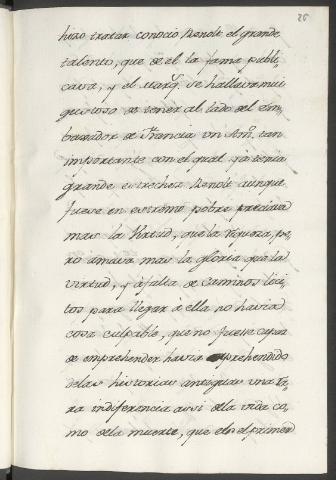 26
hizo tratar conocio Renolt el grande
talento, que de él la fama publi
cava, y el Marq.s se hallava mui
gustoso de tener al lado del Em
baxador de Francia un Am.o tan
importante con el qual ya tenia
grande estrechez Renolt aunque
fuese en extremo pobre preciava
mas la Virtud, que la riqueza, pe
ro amava mas la gloria que la
virtud, y à falta de caminos lici
tos para llegar à ella no havia
cosa culpable, que no fuese capaz
de emprehender havia aprehendido
de las historias antiguas una ra
ra indiferencia assi de la vida co
mo de la muerte, que es el primer